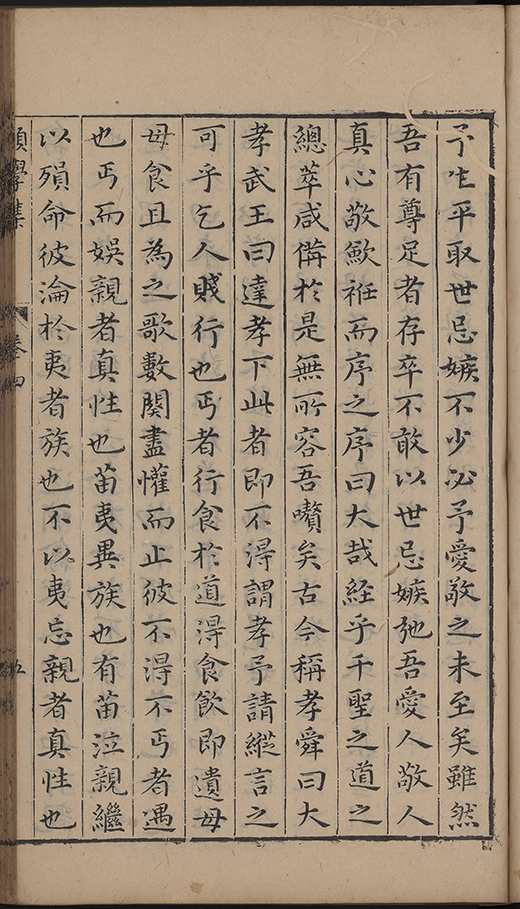 予生平取世忌嫉不少必予愛敬之未至矣雖然
吾有尊足者存卒不敢以世忌嫉弛吾愛人敬人
真心敬歛袵而序之序曰大哉経乎千聖之道之
總萃咸備於是無所容吾囋矣古今稱孝舜曰大
孝武王曰達孝下此者即不得謂孝予請縱言之
可乎乞人賤行也丐者行食於道得食飲即遺母
母食且為之歌數闋盡懽而止彼不得不丐者遇
也丐而娛親者真性也苗夷異族也有苗泣親繼
以殞命彼淪於夷者族也不以夷忘親者真性也
願學集
卷四
五